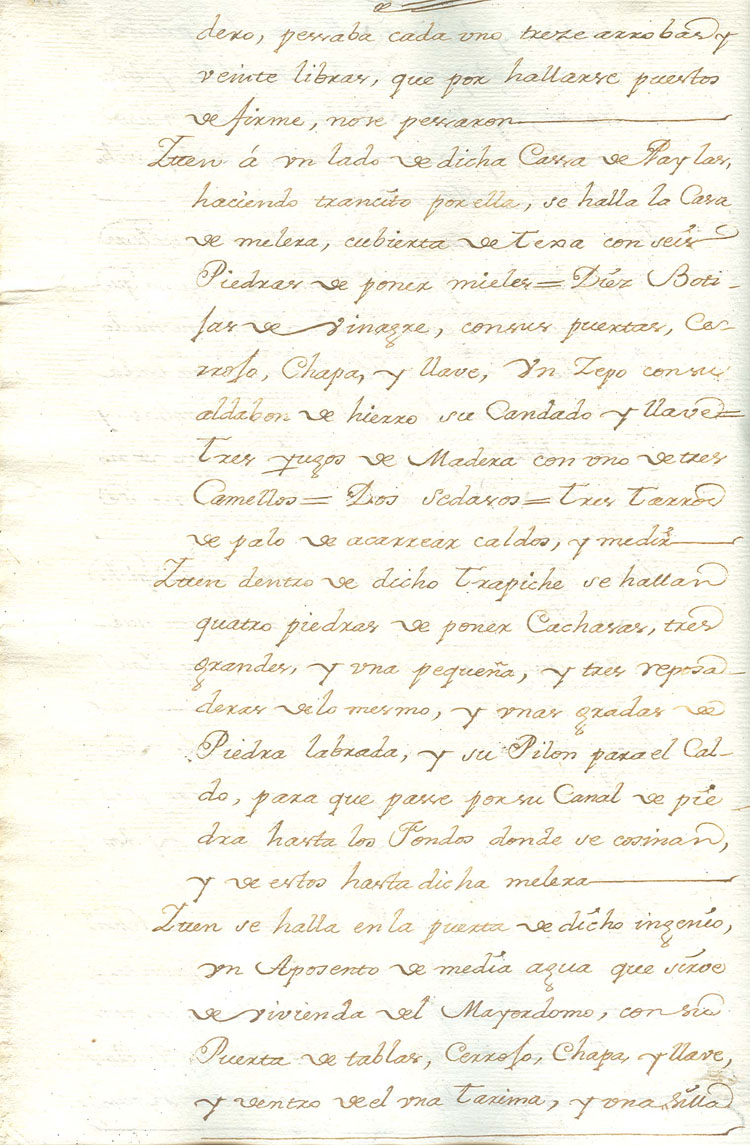 dero, pessaba cada vno treze arrobas y
veinte libras, que por hallarse puestos
de firme, nose pessaron
Yten á vn lado de dicha Cassa de Paylas,
haciendo trancito por ella, se halla la Casa
de melera, cubierta de texa con seis
Piedras de poner mieles = Diéz Boti-
jas de vinagre, consus puertas, Ce-
rrojo, Chapa, y llave, Vn Zepo consu
aldabon de hierro su Candado y llave =
Tres yugos de Madera con vno de tres
Camellos = Dos sedasos = Tres Tarros
de palo de acarrear caldos, y medir
Yten dentro de dicho Trapiche se hallan
quatro piedras de poner Cachasas, tres
grandes, y vna pequeña, y tres reposa-
deras delo mesmo, y vnas gradas de
Piedra labrada, y su Pilon para el Cal-
do, para que passe por su Canal de pie
dra hasta los Fondos donde se cosinan,
y de estos hasta dicha melera
Yten se halla en la puerta de dicho ingenio,
vn Aposento de media agua que sirve
de vivienda del Mayordomo, con su
Puerta de tablas, Cerrojo, Chapa, y llave,
y dentro de el vna Tarima, y vna silla